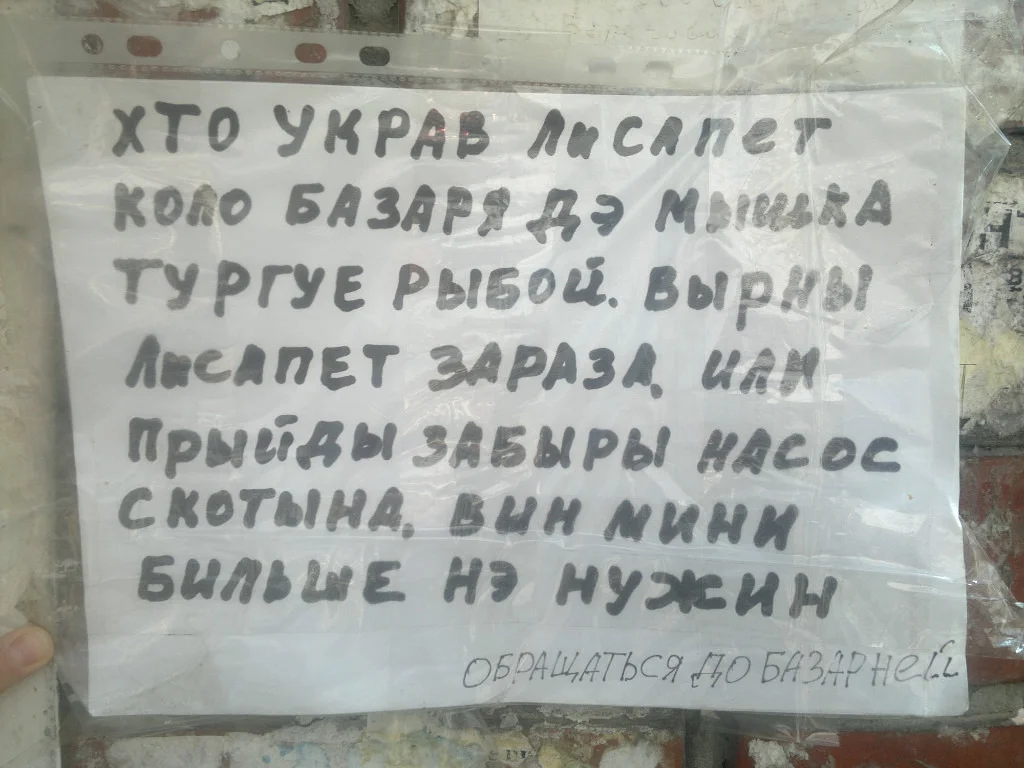 ХТО УКРАВ ЛиСАПеТ
КОЛО БАЗАРЯ ДЭ МЫШКА
ТУРГУЕ РЫБОЙ. ВЫРНЫ
ЛиСАПЕТ ЗАРАЗА. ИЛИ
ПРЫЙДЫ ЗАБЫРЫ НАСОС
СКОТЫНА. ВИН МИНИ
БИЛЬШЕ НЭ НУЖИН
ОБРАЩАТЬСЯ ДО БАЗАРНеЙ